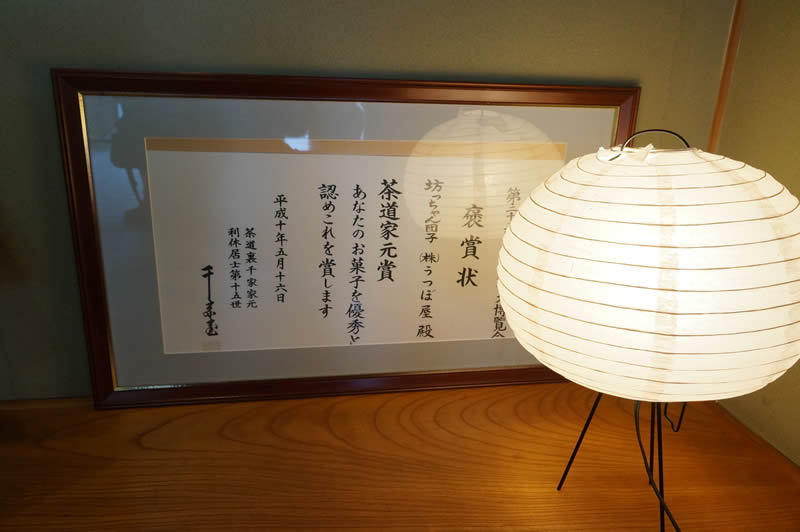 第二十
大博覧会
褒賞状
坊っちゃん団子 (株)うつぼ屋 殿
茶道家元賞
あなたのお菓子を優秀と
認めこれを賞します
平成十年五月十六日
茶道裏千家家元
利休居士第十五世
千宗室